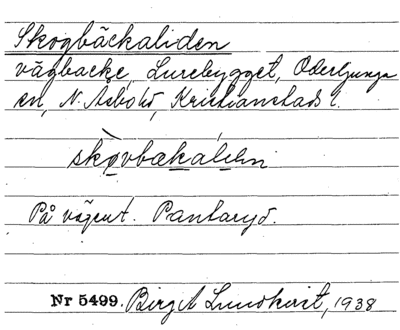 Skogbäckaliden
vägbacke, Lurebygget, Oderljunga
sn, N. Åsbo hd, Kristianstads l.
skovbakalidn
På vägen t. Pantaryd.
Nr 5499. Birgit Lundkvist, 1938